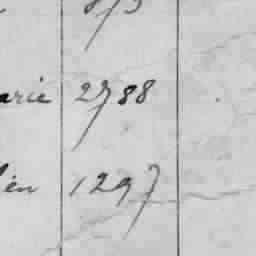 arie 2788
en 1297